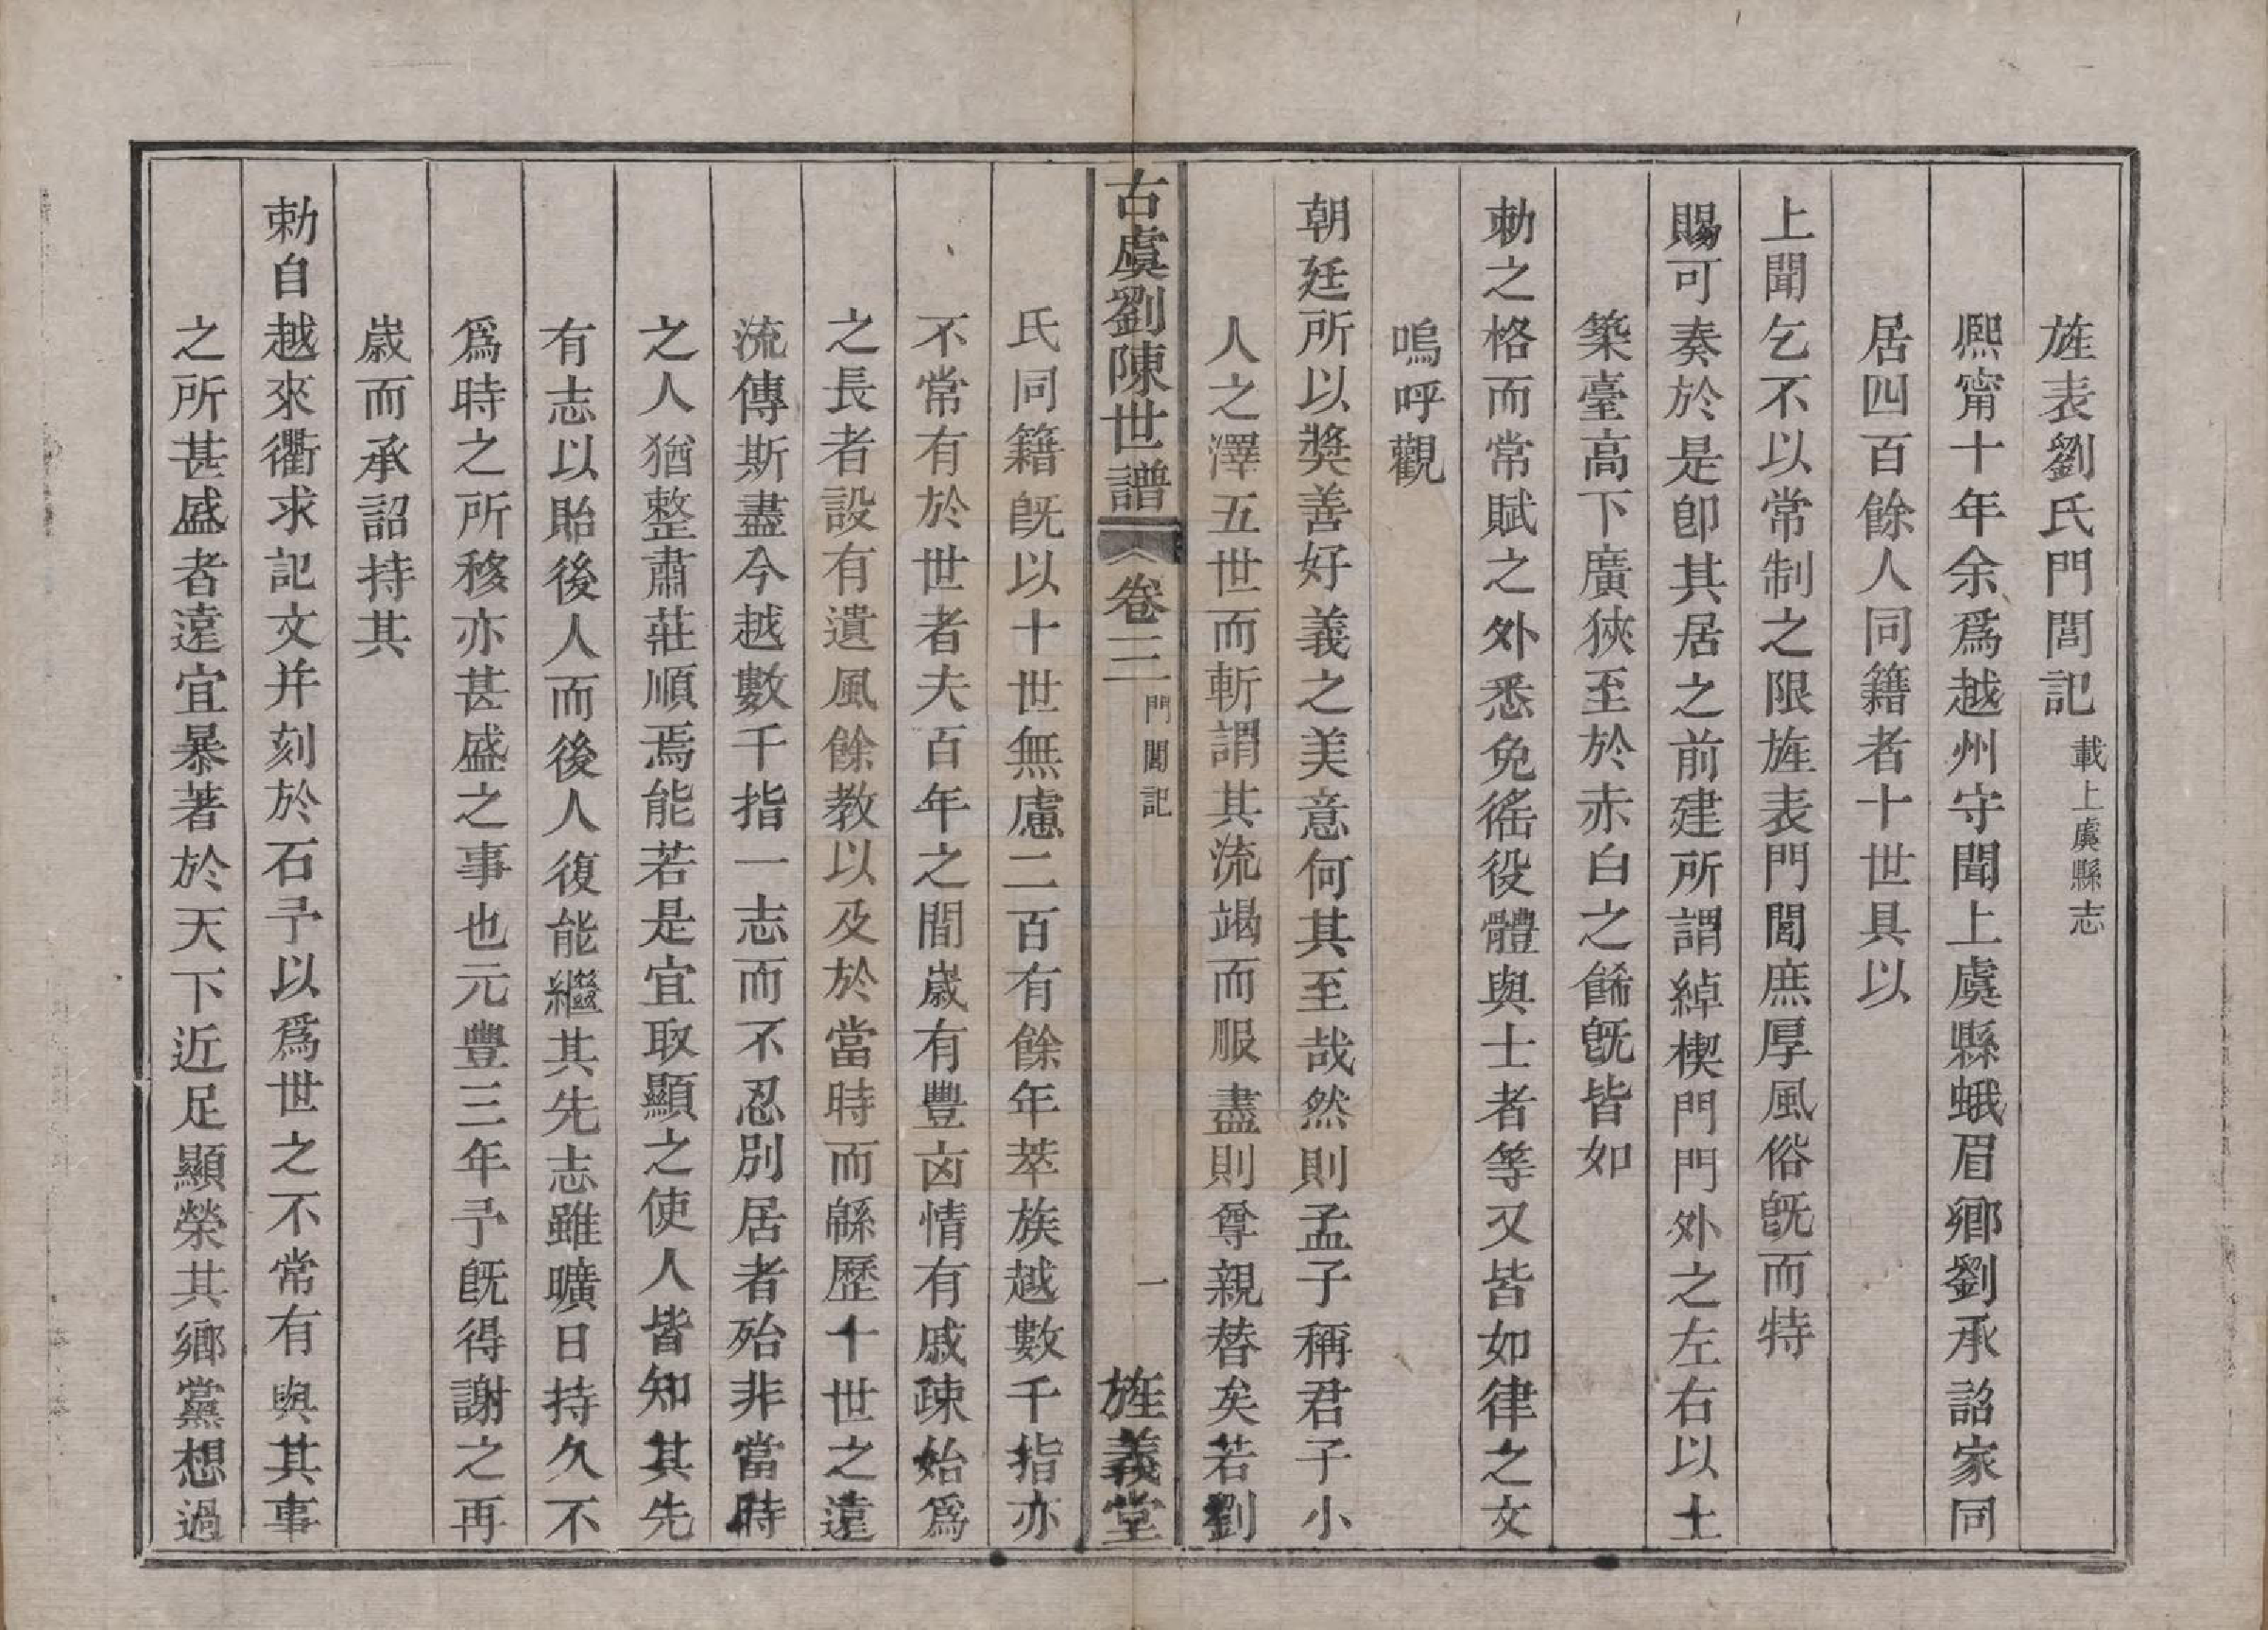 旌表劉氏門閭記 載上虞縣志
熙甯十年余爲越州守聞上虞縣蛾眉鄉劉承詔家同
居四百餘人同籍者十世具以
上聞乞不以常制之限旌表門閭庶厚風俗旣而特
賜可奏於是卽其居之前建所謂綽楔門門外之左右以土
築臺高下廣狹至於赤白之餙旣皆如
勅之格而常賦之外悉免徭役體與士者等又皆如律之文
嗚呼觀
朝廷所以奬善好義之美意何其至哉然則孟子稱君子小
人之澤五世而斬謂其流竭而服盡則尊親替矣若劉
古虞劉陳世譜 卷三 門閭記 一 旌義堂
氏同籍旣以十世無慮二百有餘年萃族越數千指亦
不常有於世者夫百年之間歲有豐凶情有戚疎始爲
之長者設有遺風餘教以及於當時而緜歷十世之遠
流傳斯盡今越數千指一志而不忍別居者殆非當時
之人猶整肅莊順焉能若是宜取顯之使人皆知其先
有志以貽後人而後人復能繼其先志雖曠日持久不
爲時之所移亦甚盛之事也元豐三年予旣得謝之再
歲而承詔持其
勅自越來衢求記文并刻於石予以爲世之不常有與其事
之所甚盛者遠宜暴著於天下近足顯榮其鄉黨想過